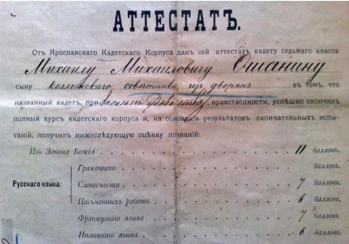 АТТЕСТАТЪ.
Отъ Ярославскаго Кадетскаго Корпуса данъ сей аттестатъ кадету седьмаго класса
Михаилу Михайловичу Ошанину
сыну коллежскаго совѣтника, изъ дворянъ въ томъ, что
названный кадетъ, при нравственности, успѣшно окончилъ
полный курсъ кадетскаго корпуса и, на основаніи результатовъ окончательныхъ испы-
таній, получилъ нижеслѣдующую оцѣнку познаній:
Изъ Закона Божія 11 балловъ.
Грамматики балловъ.
Русскаго языка: Словесности 7 балловъ.
Письменныхъ работъ 6 балловъ.
Французскаго языка 7 балловъ.
Нѣмецкаго языка 6 балловъ.